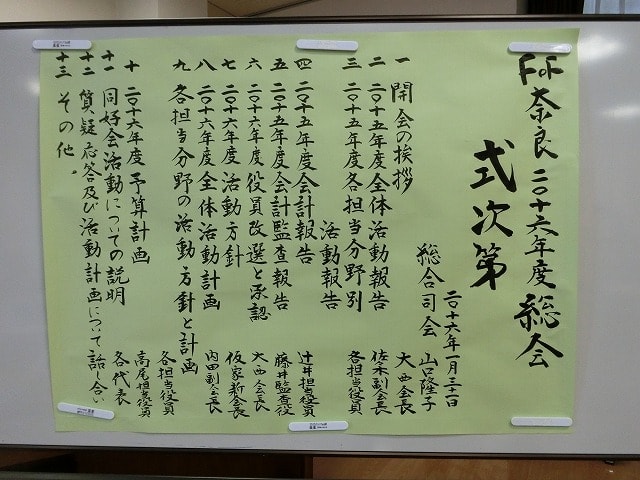 FoF奈良二〇十六年度総会
式次第
二〇十六年一月三十一日
総合司会 山口隆子
一 開会の挨拶 大西会長
二 二〇十五年度全体活動報告 佐木副会長
三 二〇十五年度各担当分野別
活動報告 各担当役員
四 二〇十五年度会計報告 辻井担当役員
五 二〇十五年度会計監査報告 藤井監査役
六 二〇十六年度役員改選と承認 大西会長
七 二〇十六年度活動方針 仮家新会長
八 二〇十六年度全体活動計画 内田副会長
九 各担当分野の活動方針と計画
各担当役員
十 二〇十六年度予算計画 高尾担当役員
十一 同好会活動についての説明 各代表
十二 質疑応答及び活動計画について話し合い
十三 その他。